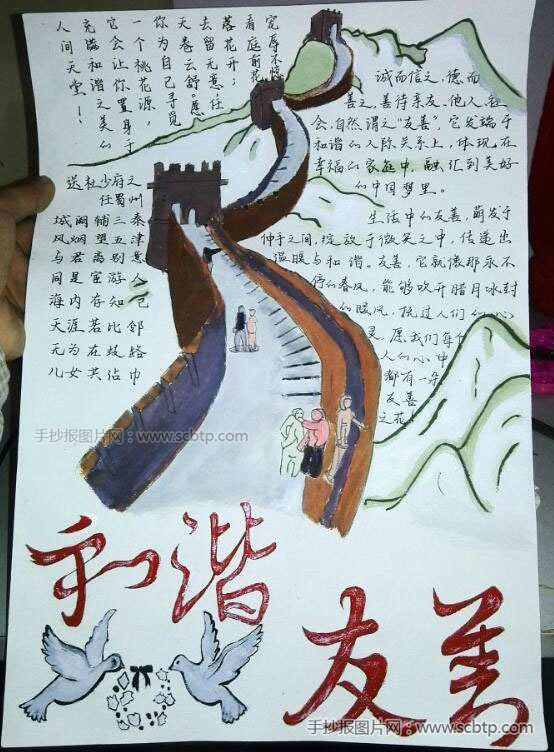 宠辱不惊
看庭前花
落花开；
去留无意，任
天卷云舒。愿
你为自己寻觅
一个桃花源，
它会让你置身于
充满和谐之美的
人间天堂！
诚而信之、德而
善之、善待亲友、他人、社
会、自然谓之“友善”，它发端于
和谐的人际关系上，体现在
幸福的家庭中，融汇到美好
的中国梦里。
送杜少府之
任蜀州
城阙辅三秦
风烟望五津
与君离别意
同是宦游人
海内存知己
天涯若比邻
无为在歧路
儿女共沾巾
生活中的友善，萌发于
伸手之间，绽放于微笑之中，传递出
温暖与和谐。友善，它就像那永不
停的春风，能够吹开腊月冰封
的暖风，抚过人们的心
灵，愿我们每个
人的心中
都有一朵
友善
之花！
手抄报图片网：www.scbtp.com
和谐
友善
手抄报图片网：www.scbtp.com